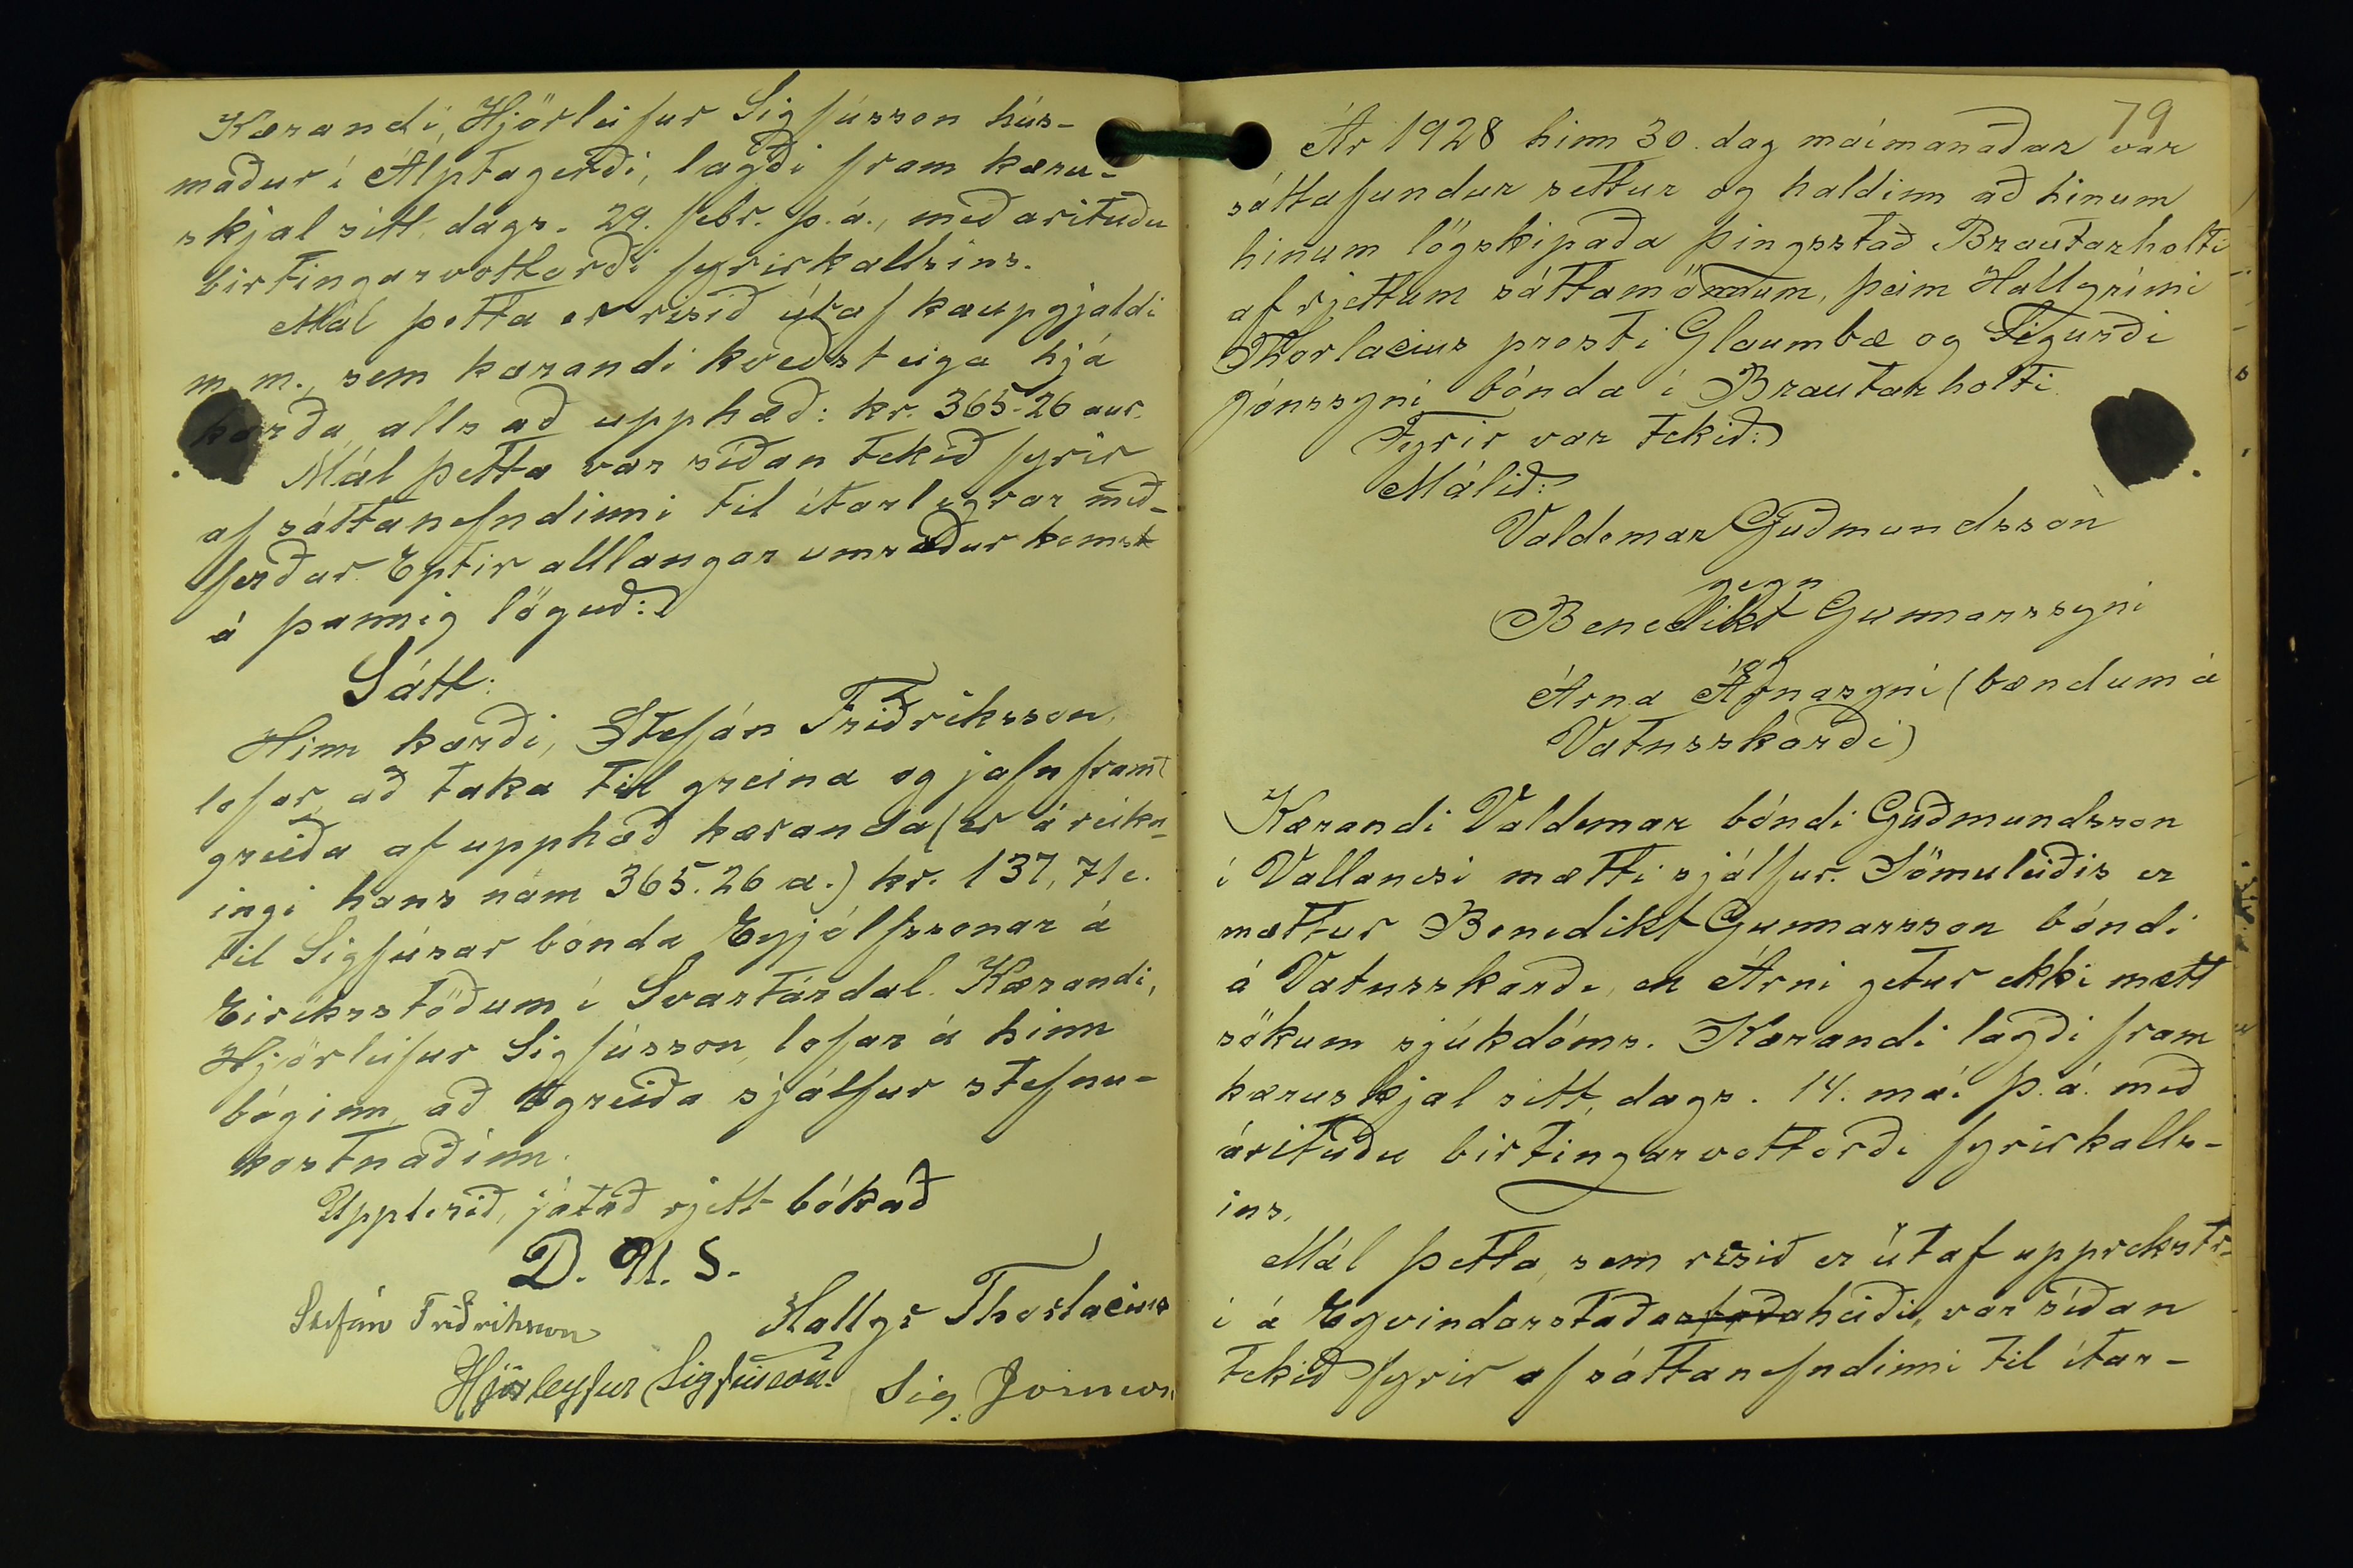 Kærandi, Hjörleifur Sigfússon hús-
maður í Álptagerði, lagði fram kæru-
skjal sitt, dags. 29. febr. þ. á., með árituðu
birtingarvottorði fyrirkallsins.
Mál þetta er risið útaf kaupgjaldi
m. m., sem kærandi kveðst eiga hjá
kærða, alls að upphæð: kr. 365-26 aur.
Mál þetta var síðan tekið fyrir
af sáttanefndinni til ítarlegrar með-
ferðar. Eptir alllangar umræður komst
á þannig löguð:
Sátt:
Hinn kærði, Stefán Friðriksson,
lofar að taka til greina og jafnframt
greiða af upphæð kæranda (er á reikn-
ingi hans nam 365.26 a.) kr. 137,71 e.
til Sigfúsar bónda Eyjólfssonar á
Eiríksstöðum í Svartárdal. Kærandi,
Hjörleifur Sigfússon, lofar á hinn
bóginn, að greiða sjálfur stefnu-
kostnaðinn.
Upplesið, játað rjett bókað
D. U. S.
Stefán Friðriksson Hallgr Thorlacius
Hjörleyfur Sigfússon. Sig. Jónsson
79
Ár 1928 hinn 30. dag maímánaðar var
sáttafundur settur og haldinn að hinum
hinum lögskipaða þingsstað Brautarholti
af rjettum sáttamönnum, þeim Hallgrími
Thorlacius presti í Glaumbæ og Sigurði
Jónssyni bónda í Brautarholti.
Fyrir var tekið:
Málið:
Valdemar Guðmundsson
gegn
Benedikt Gunnarssyni
og
Árna Árnasyni (bændum á
Vatnsskarði)
Kærandi Valdemar bóndi Guðmundsson
í Vallanesi mætti sjálfur. Sömuleiðis er
mættur Benedikt Gunnarsson bóndi
á Vatnsskarði, en Árni getur ekki mætt
sökum sjúkdóms. Kærandi lagði fram
kæruskjal sitt, dags. 14. maí þ. á. með
árituðu birtingarvottorði fyrirkalls-
ins.
Mál þetta, sem risið er útaf upprekstr-
i á Eyvindarstaðaheiði, var síðan
tekið fyrir af sáttanefndinni til ítar-